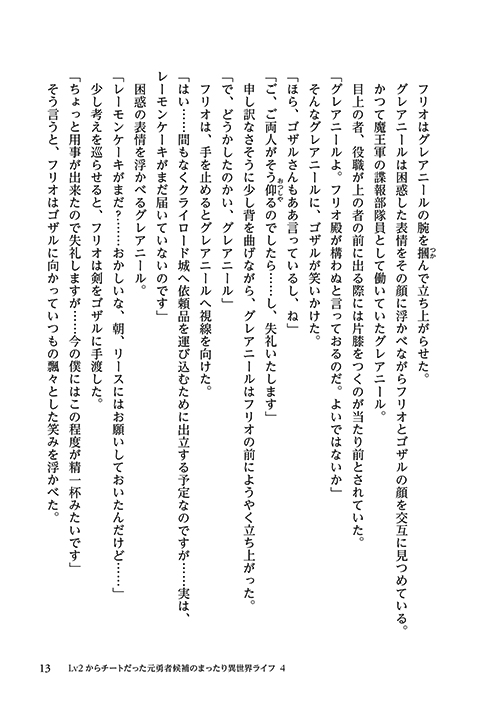 フリオはグレアニールの腕を掴んで立ち上がらせた。
グレアニールは困惑した表情をその顔に浮かべながらフリオとゴザルの顔を交互に見つめている。
かつて魔王軍の諜報部隊員として働いていたグレアニール。
目上の者、役職が上の者の前に出る際には片膝をつくのが当たり前とされていた。
「グレアニールよ。フリオ殿が構わぬと言っておるのだ。よいではないか」
そんなグレアニールに、ゴザルが笑いかけた。
「ほら、ゴザルさんもああ言っているし、ね」
「ご、ご両人がそう仰るのでしたら……し、失礼いたします」
申し訳なさそうに少し背を曲げながら、グレアニールはフリオの前にようやく立ち上がった。
「で、どうかしたのかい、グレアニール」
フリオは、手を止めるとグレアニールへ視線を向けた。
「はい……間もなくクライロード城へ依頼品を運び込むために出立する予定なのですが……実は、
レーモンケーキがまだ届いていないのです」
困惑の表情を浮かべるグレアニール。
「レーモンケーキがまだ？……おかしいな、朝、リースにはお願いしておいたんだけど……」
少し考えを巡らせると、フリオは剣をゴザルに手渡した。
「ちょっと用事が出来たので失礼しますが……今の僕にはこの程度が精一杯みたいです」
そう言うと、フリオはゴザルに向かっていつもの飄々とした笑みを浮かべた。
13 Lv2からチートだった元勇者候補のまったり異世界ライフ 4